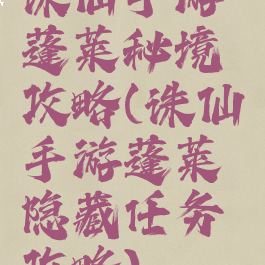 诛仙手游
蓬莱秘境
攻略(诛仙
手游蓬莱
隐藏任务
攻略)